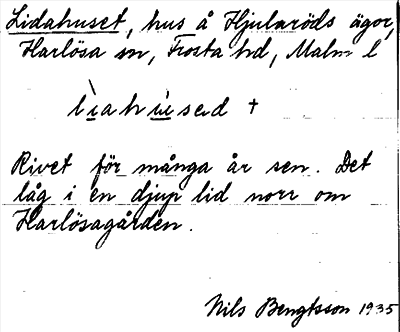 Lidahuset, hus å Hjularöds ägor,
Harlösa sn, Frosta hd, Malm l
lìahùsəd †
Rivet för många år sen. Det
låg i en djup lid norr om
Harlösagården.
Nils Bengtsson 1935